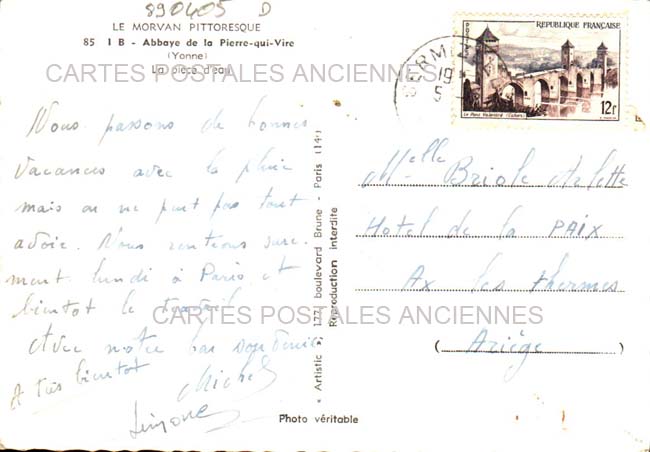 890405 D
LE MORVAN PITTORESQUE
85 1 B - Abbaye de la Pierre-qui-Vire
(Yonne)
La pièce d'eau
CARTES POSTALES ANCIENNES
Nous passons de bonnes
vacances avec la pluie
mais on ne peut pas tout
avoir. Nous rentrons sure-
ment lundi à Paris et
bientôt le travail
CARTES POSTALES ANCIENNES
Avec notre bon souvenir
A très bientôt Michel
Simone
« Artistic », 177, boulevard Brune - Paris (14
Reproduction interdite
Photo véritable
POSTES
REPUBLIQUE FRANÇAISE
Le Pont Valentré (Cahors)
12f
19
5
Melle Briole Arlette
Hotel de la PAIX
Ax les thermes
(Ariège)